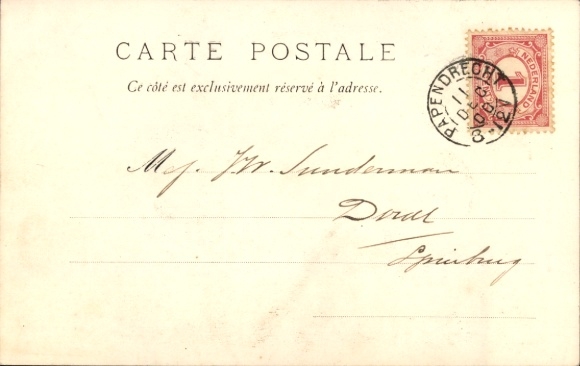 CARTE POSTALE
Ce côté est exclusivement réservé à l'adresse.
Mej. J.W. Sunderman
Dordt
Spuiburg
Ct. NEDERLAND
1
PAPENDRECHT
11 DEC